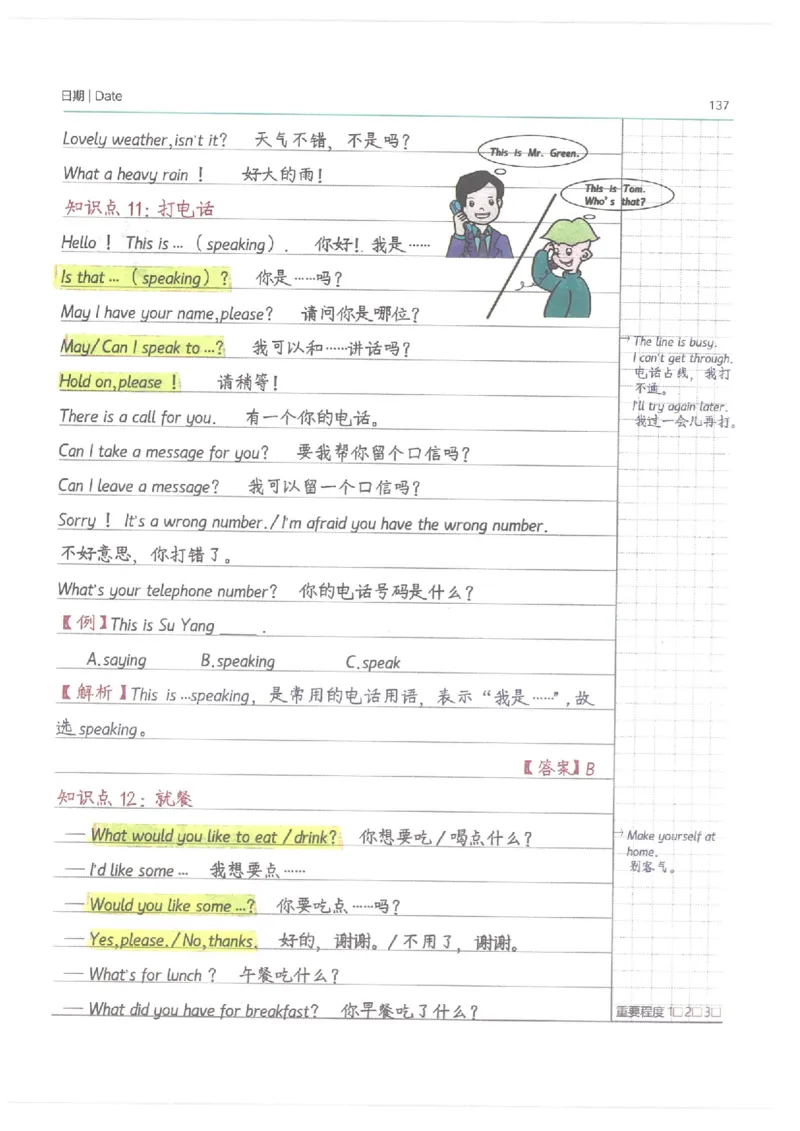 日期 | Date
137
Lovely weather,isn't it? 天气不错，不是吗？
What a heavy rain！ 好大的雨！
This is Mr. Green.
This is Tom.
Who's that?
知识点 11：打电话
Hello！ This is …（speaking）. 你好！我是……
Is that …（speaking）? 你是……吗？
May I have your name,please? 请问你是哪位？
May/Can I speak to …? 我可以和……讲话吗？
Hold on,please！ 请稍等！
There is a call for you. 有一个你的电话。
Can I take a message for you? 要我帮你留个口信吗？
Can I leave a message? 我可以留一个口信吗？
Sorry！ It's a wrong number./I'm afraid you have the wrong number.
不好意思，你打错了。
What's your telephone number? 你的电话号码是什么？
→ The line is busy.
I can't get through.
电话占线，我打
不通。
I'll try again later.
我过一会儿再打。
【例】This is Su Yang ____ .
A.saying B.speaking C.speak
【解析】This is …speaking，是常用的电话用语，表示“我是……”，故
选 speaking。
【答案】B
知识点 12：就餐
— What would you like to eat / drink? 你想要吃/喝点什么？
— I'd like some … 我想要点……
— Would you like some …? 你要吃点……吗？
— Yes,please./No,thanks. 好的，谢谢。/不用了，谢谢。
— What's for lunch？ 午餐吃什么？
— What did you have for breakfast? 你早餐吃了什么？
→ Make yourself at
home.
别客气。
重要程度 1□ 2□ 3□